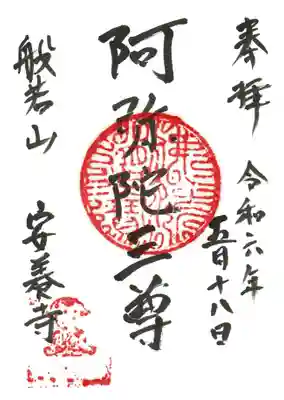 奉拝 令和六年
五月十八日
阿弥陀三尊
般若山 安養寺